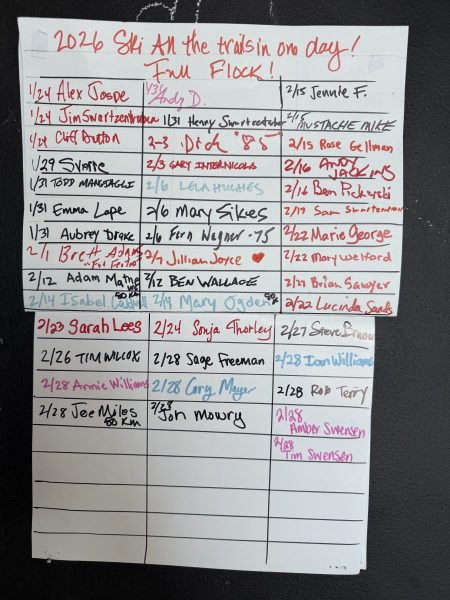 2026 Ski All the trails in one day!
Full Flock!
1/24 Alex Jospe
1/31 Andy D.
2/15 Jennie F.
1/24 Jim Swartzentruber
1/31 Henry Swartzentruber
2/15 MUSTACHE MIKE
1/24 Cliff Dutton
2-3 Dick "85"
2/15 Rose Gellman
1/29 Sverre
2/3 GARY INTERNICOLA
2/16 ANDY JACKINS
1/31 TODD MANGIAGLI
2/6 LELA HUGHES
2/16 Ben
1/31 Emma Lape
2/6 Mary Sikes
2/17 Sam
1/31 Aubrey Drake
2/6 Fern Wagner - 75
2/22 Marie George
2/1 Brett Adams
2/7 Jillian Joyce ♥
2/22 Mary
2/12 Adam Maine
50 KM
2/12 BEN WALLACE
2/22 Brian Sawyer
2/14 Isabel
2/14 Mary Ogden
2/22 Lucinda
2/23 Sarah Lees
2/24 Sonja Thorley
2/27 Steve
2/26 TIM WILCOX
2/28 Sage Freeman
2/28 Ian Williams
2/28 Annie Williams
2/28 Cory Mayer
2/28 ROB TERRY
2/28 Joe Miles
50 KM
2/28 Jon Mowry
2/28
Amber Swensen
2/28
Tim Swensen